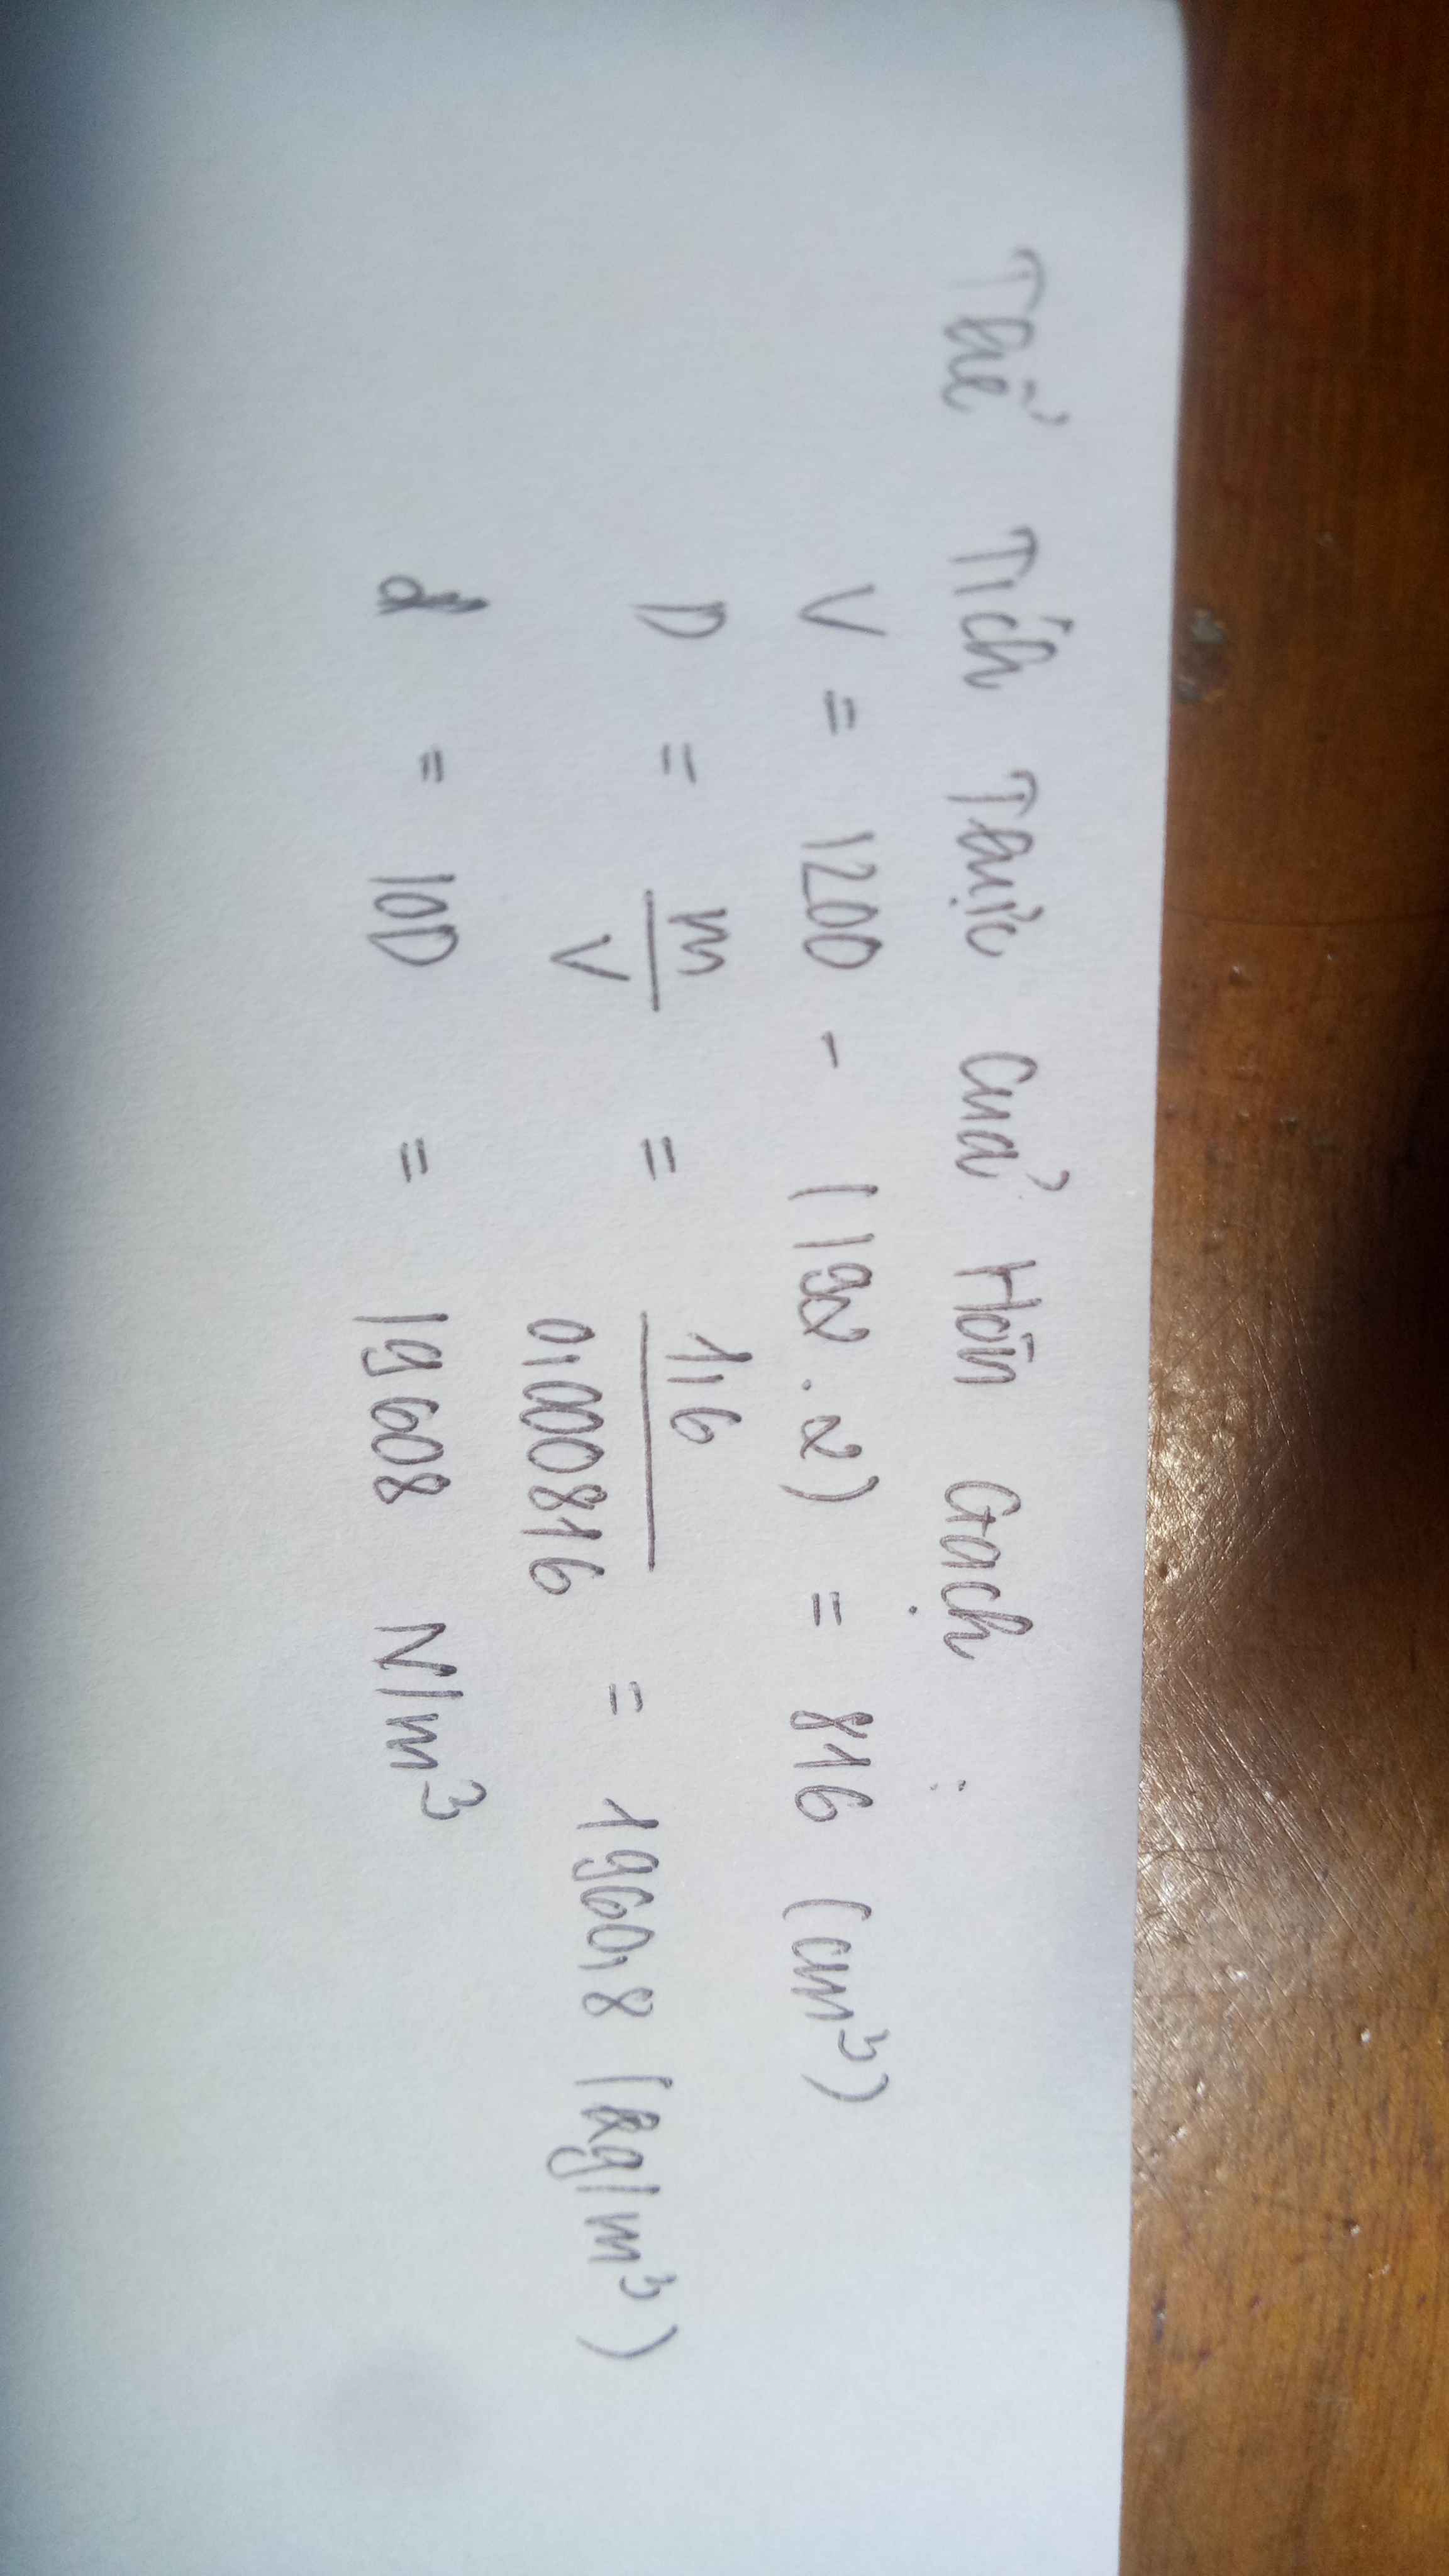 Thể Tích Thực Của Hòn Gạch :
V = 1200 - (192 . 2) = 816 (cm³)
D = m/V = 1,6/0,000816 = 1960,8 (kg/m³)
d = 10D = 19608 N/m³